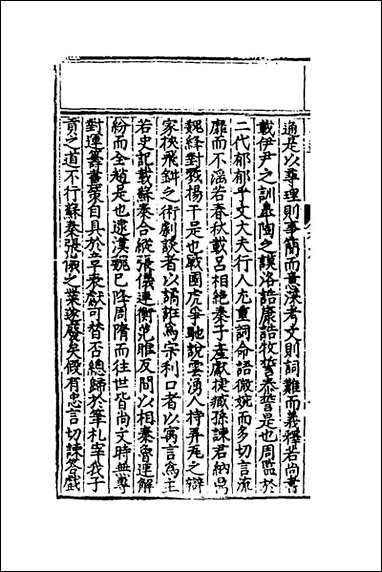 通是以尋理則事簡而意深考文則詞難而義釋若尚書
載伊尹之訓皐陶之謨洛誥康誥牧誓泰誓是也周監於
二代郁郁乎文大夫行人尤重詞命語微婉而多切言流
靡而不淫若春秋載呂相絶秦子產獻捷臧孫諫君納鼎
魏絳對戮楊干是也戰國虎爭馳說雲湧人持弄丸之辯
家挾飛鉗之術劇談者以譎誑爲宗利口者以寓言爲主
若史記載蘇秦合縱張儀連衡范雎反間以相秦魯連解
紛而全趙是也逮漢魏已降周隋而往世皆尚文時無專
對運籌畫策自具於章表獻可替否總歸於筆札宰我子
貢之道不行蘇秦張儀之業遂廢矣假有忠言切諫答戲